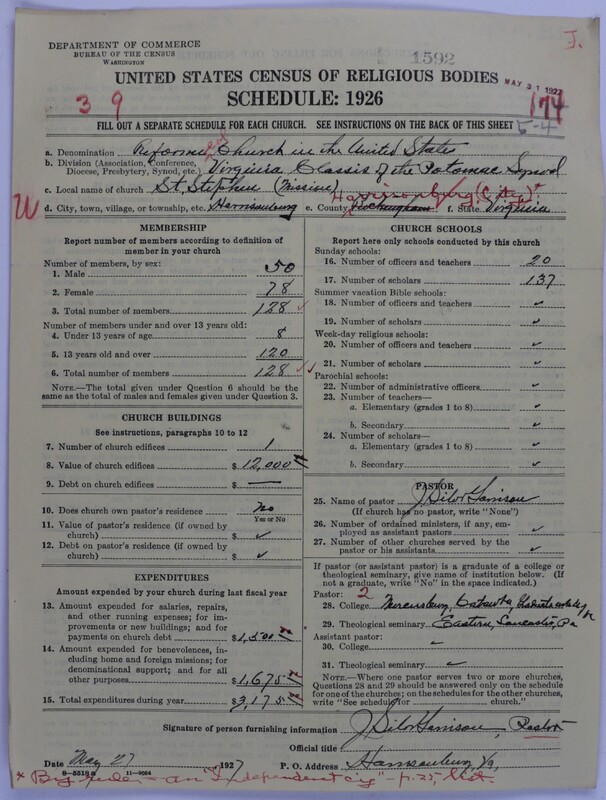 DEPARTMENT OF COMMERCE
BUREAU OF THE CENSUS
WASHINGTON
1592
J.
UNITED STATES CENSUS OF RELIGIOUS BODIES
MAY 31 1927
SCHEDULE: 1926
3 9
174
FILL OUT A SEPARATE SCHEDULE FOR EACH CHURCH. SEE INSTRUCTIONS ON THE BACK OF THIS SHEET
5-4
a. Denomination Reformed Church in the United States
b. Division (Association, Conference, Diocese, Presbytery, Synod, etc.) Virginia Classis of the Potomac Synod
c. Local name of church St. Stephen (Mission)
Harrisonburg (City)*
W
d. City, town, village, or township, etc. Harrisonburg e. County Rockingham f. State Virginia
MEMBERSHIP
Report number of members according to definition of member in your church
Number of members, by sex:
1. Male 50
2. Female 78
3. Total number of members 128 ✓
Number of members under and over 13 years old:
4. Under 13 years of age 8
5. 13 years old and over 120
6. Total number of members 128 ✓✓
NOTE.—The total given under Question 6 should be the same as the total of males and females given under Question 3.
CHURCH BUILDINGS
See instructions, paragraphs 10 to 12
7. Number of church edifices 1
8. Value of church edifices $ 12,000
9. Debt on church edifices $ —
10. Does church own pastor's residence No
Yes or No
11. Value of pastor's residence (if owned by church) $ ✓
12. Debt on pastor's residence (if owned by church) $ ✓
EXPENDITURES
Amount expended by your church during last fiscal year
13. Amount expended for salaries, repairs, and other running expenses; for improvements or new buildings; and for payments on church debt $ 1,500
14. Amount expended for benevolences, including home and foreign missions; for denominational support; and for all other purposes $ 1,675
15. Total expenditures during year $ 3,175
CHURCH SCHOOLS
Report here only schools conducted by this church
Sunday schools:
16. Number of officers and teachers 20
17. Number of scholars 137
Summer vacation Bible schools:
18. Number of officers and teachers ✓
19. Number of scholars ✓
Week-day religious schools:
20. Number of officers and teachers ✓
21. Number of scholars ✓
Parochial schools:
22. Number of administrative officers ✓
23. Number of teachers—
a. Elementary (grades 1 to 8) ✓
b. Secondary ✓
24. Number of scholars—
a. Elementary (grades 1 to 8) ✓
b. Secondary ✓
PASTOR
25. Name of pastor J. Silor Garrison
(If church has no pastor, write "None")
26. Number of ordained ministers, if any, employed as assistant pastors ✓
27. Number of other churches served by the pastor or his assistants ✓
If pastor (or assistant pastor) is a graduate of a college or theological seminary, give name of institution below. (If not a graduate, write "No" in the space indicated.)
Pastor: 2
28. College Mercersburg, Catawba,
29. Theological seminary Eastern, Lancaster, Pa
Assistant pastor:
30. College ✓
31. Theological seminary ✓
NOTE.—Where one pastor serves two or more churches, Questions 28 and 29 should be answered only on the schedule for one of the churches; on the schedules for the other churches, write "See schedule for church."
Signature of person furnishing information J. Silor Garrison, Pastor
Official title
Date May 27, 1927 P. O. Address Harrisonburg, Va,
8—5518a 11—9064
an "Independent city" - p. 25,